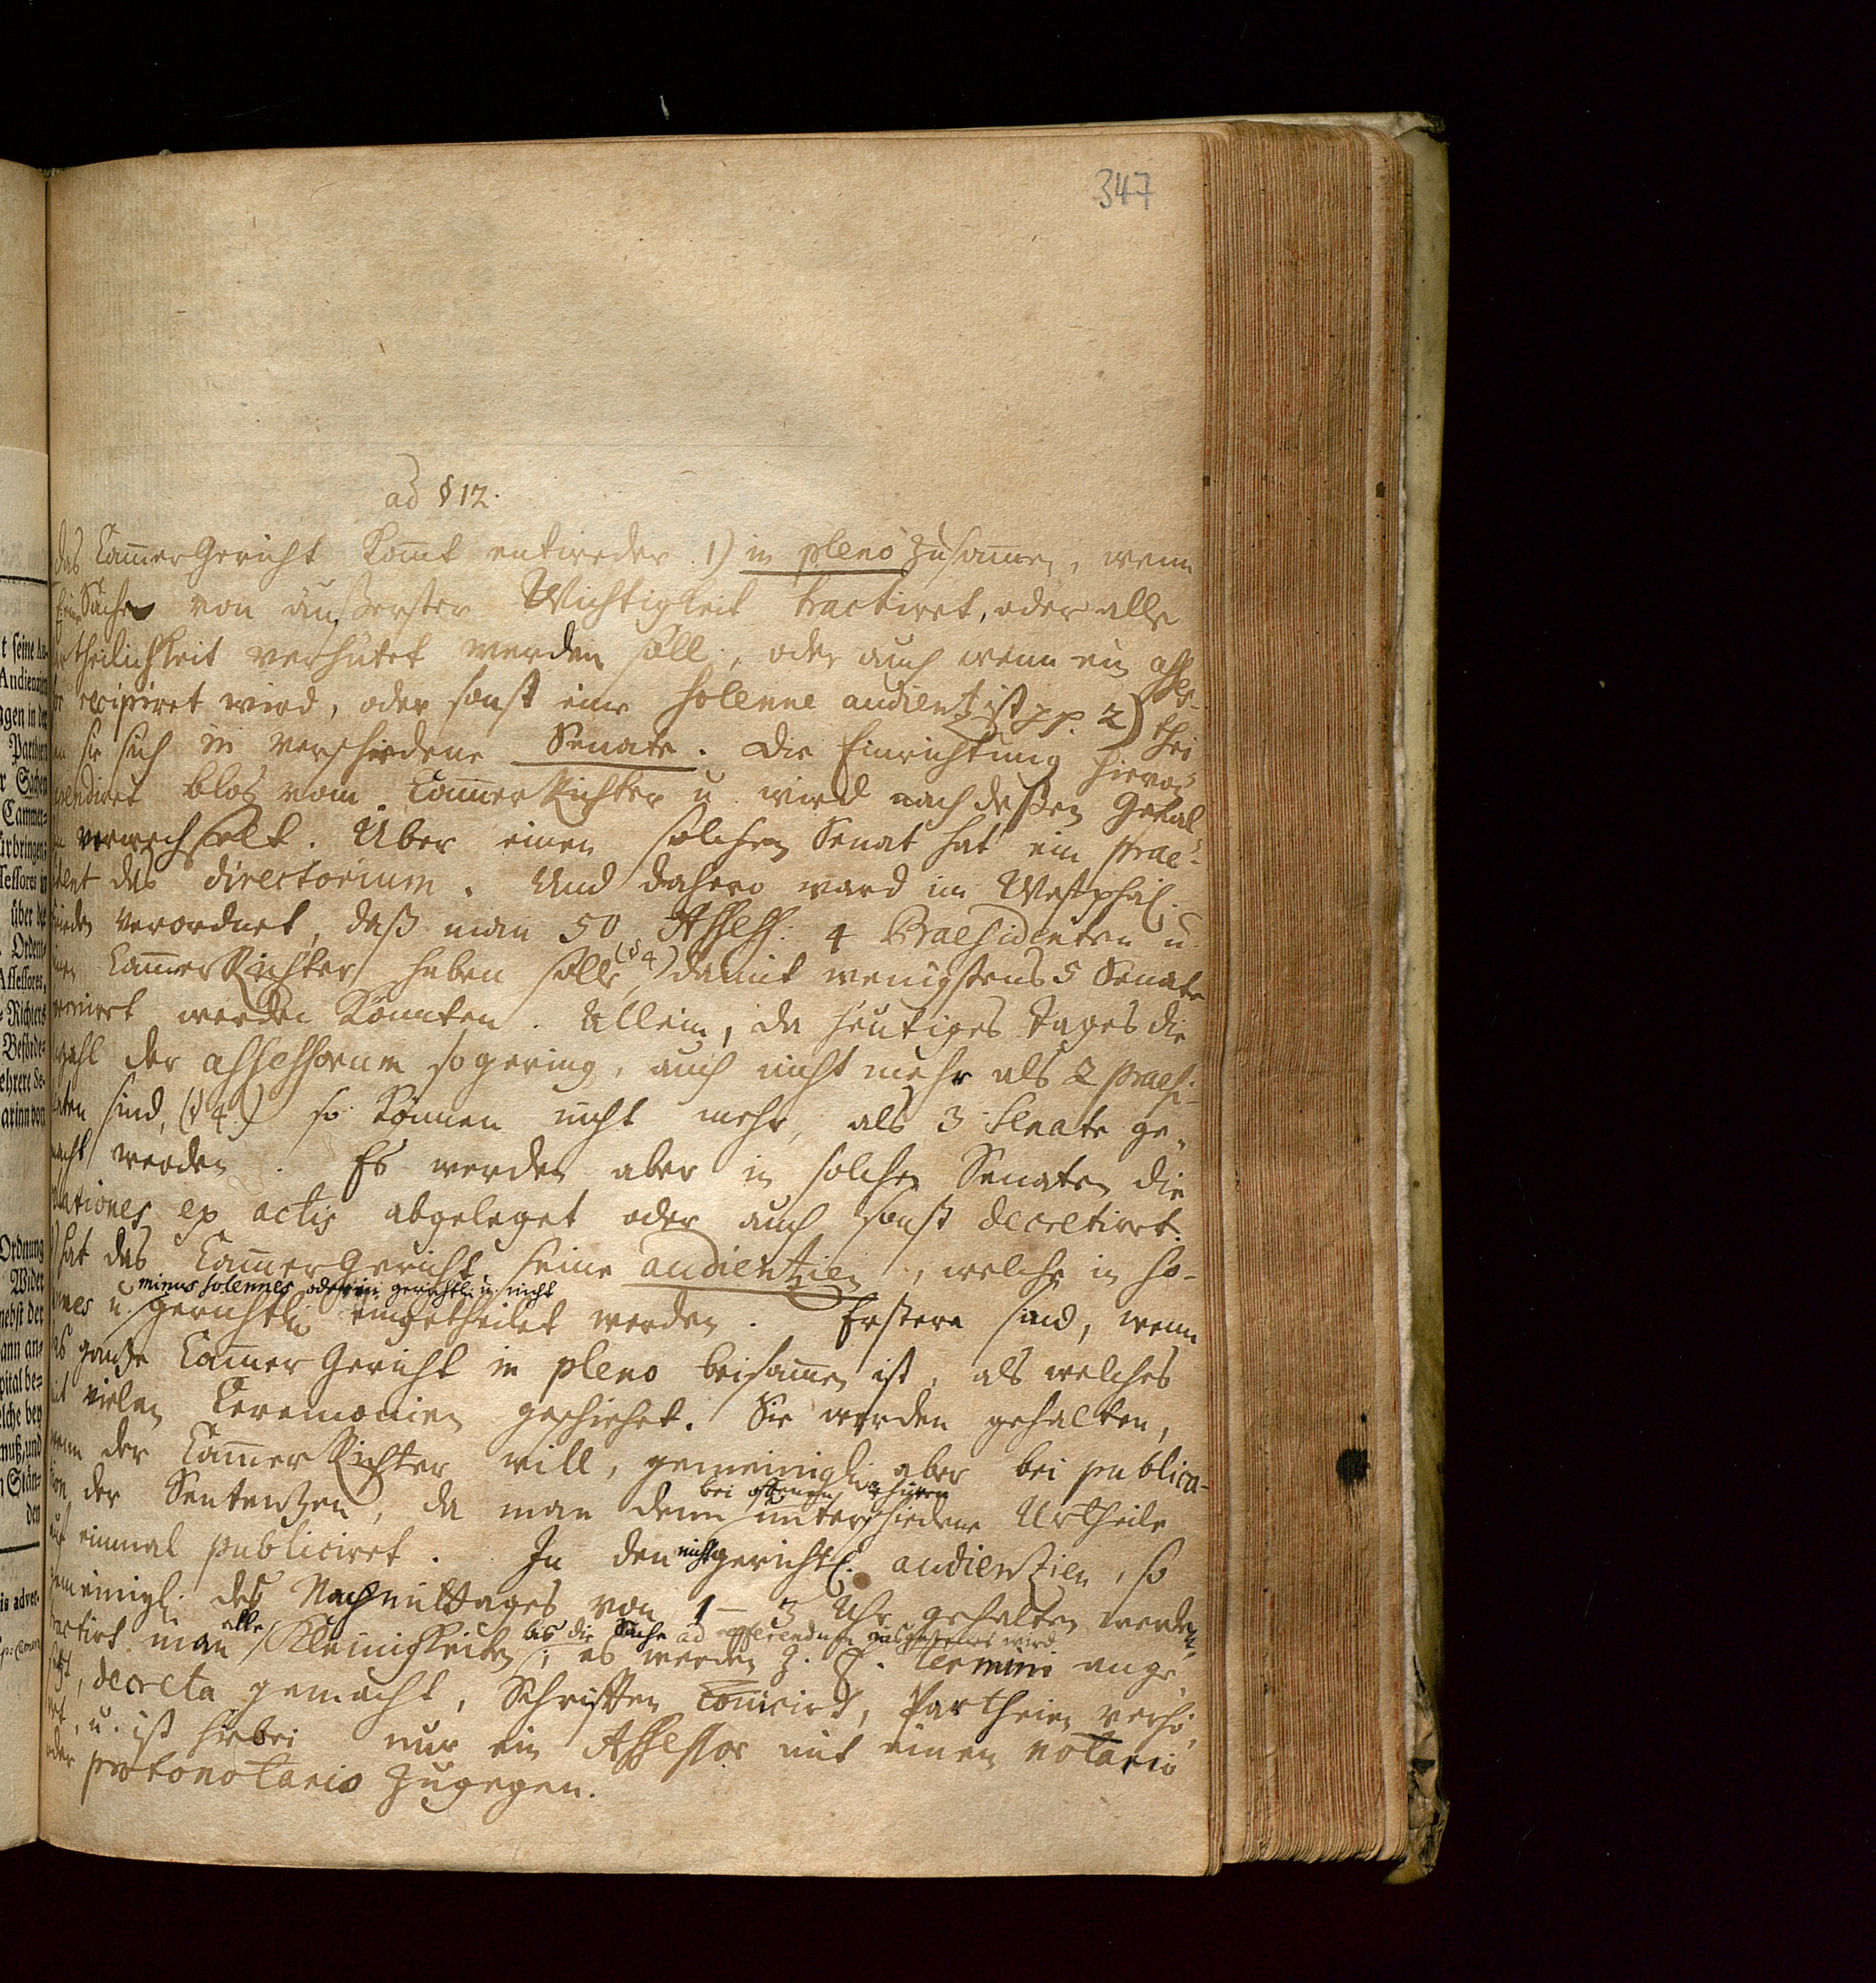 347
ad § 12.
das Cam̅erGericht kom̅t entweder 1) in pleno zusam̅en, wenn
eine Sache von äußerster Wichtigkeit tractiret, oder alle
theilichkeit verhütet werden soll, oder auch wenn ein asses-
recipiret wird, oder sonst eine solenne audientz ist pp. 2) thei
sie sich in verschiedene Senate. Die Einrichtung hievon
pendiret blos vom Cam̅erRichter u wird nach deßen Gefal
verwechselt. Uber einen solchen Senat hat ein prae-
dent das directorium. Und dahero ward im Westphäl.
Frieden verordnet, daß man 50 Assess: 4 Praesidenten u.
einen Cam̅erRichter haben solle, (§ 4) damit wenigstens 5 Senate
formiret werden könnten. Allein, da heutiges Tages die
Anzahl der assessorum so gering, auch nicht mehr als 2 praesi-
denten sind, (§ 4.) so können nicht mehr, als 3 Senate ge-
macht werden. Es werden aber in solchen Senaten die
relationes ex actis abgeleget oder auch sonst decretiret.
hat das Cam̅erGericht seine audientzien, welche in so-
minus solennes oder in gerichtl. u. nicht
lennes u. gerichtl. eingetheilet werden. Erstere sind, wenn
das gantze Cam̅erGericht in pleno beisam̅en ist, als welches
mit vielen Ceremonien geschiehet. Sie werden gehalten,
wenn der Cam̅erRichter will, gemeinigl. aber bei publica-
bei offenen Thüren
tion der Sententzen, da man denn unterschiedene Urtheile
auf einmal publiciret. In den nicht gerichtl. audientzien, so
gemeinigl. des Nachmittages von 1 – 3 Uhr gehalten werden
bis die Sache ad referendum ausgestellet wird
tractirt man alle Kleinigkeiten; es werden z. E. Termini ange-
setzt, decreta gemacht, Schriften com̅icirt, Partheien verhö-
ret, u. ist hiebei nur ein Assessor mit einen notario
oder protonotario zugegen.